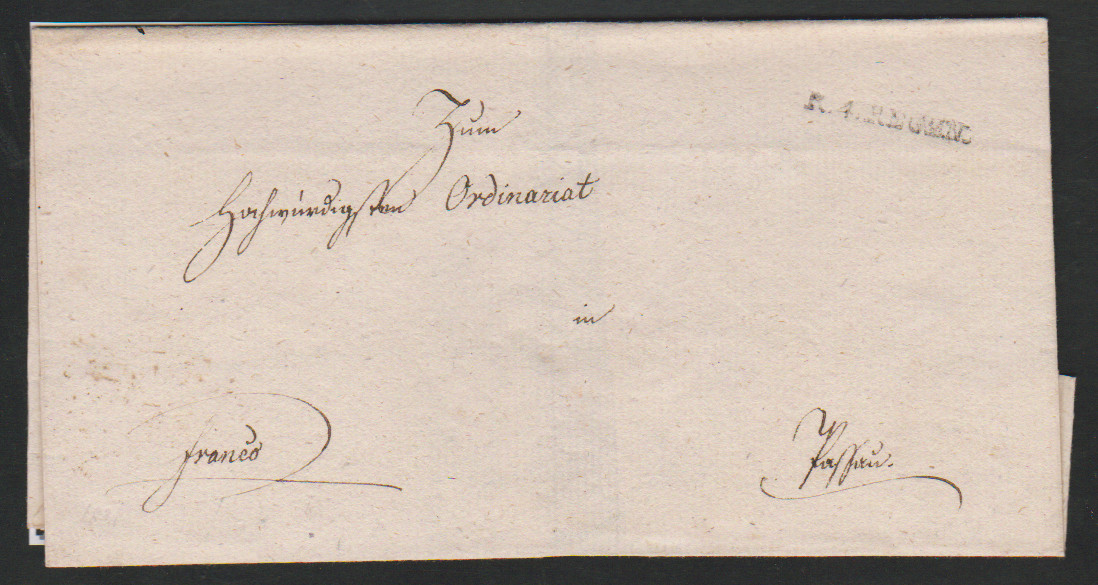 R. 4. REGEN.
Zum
Hochwürdigsten Ordinariat
in
franco
Passau.